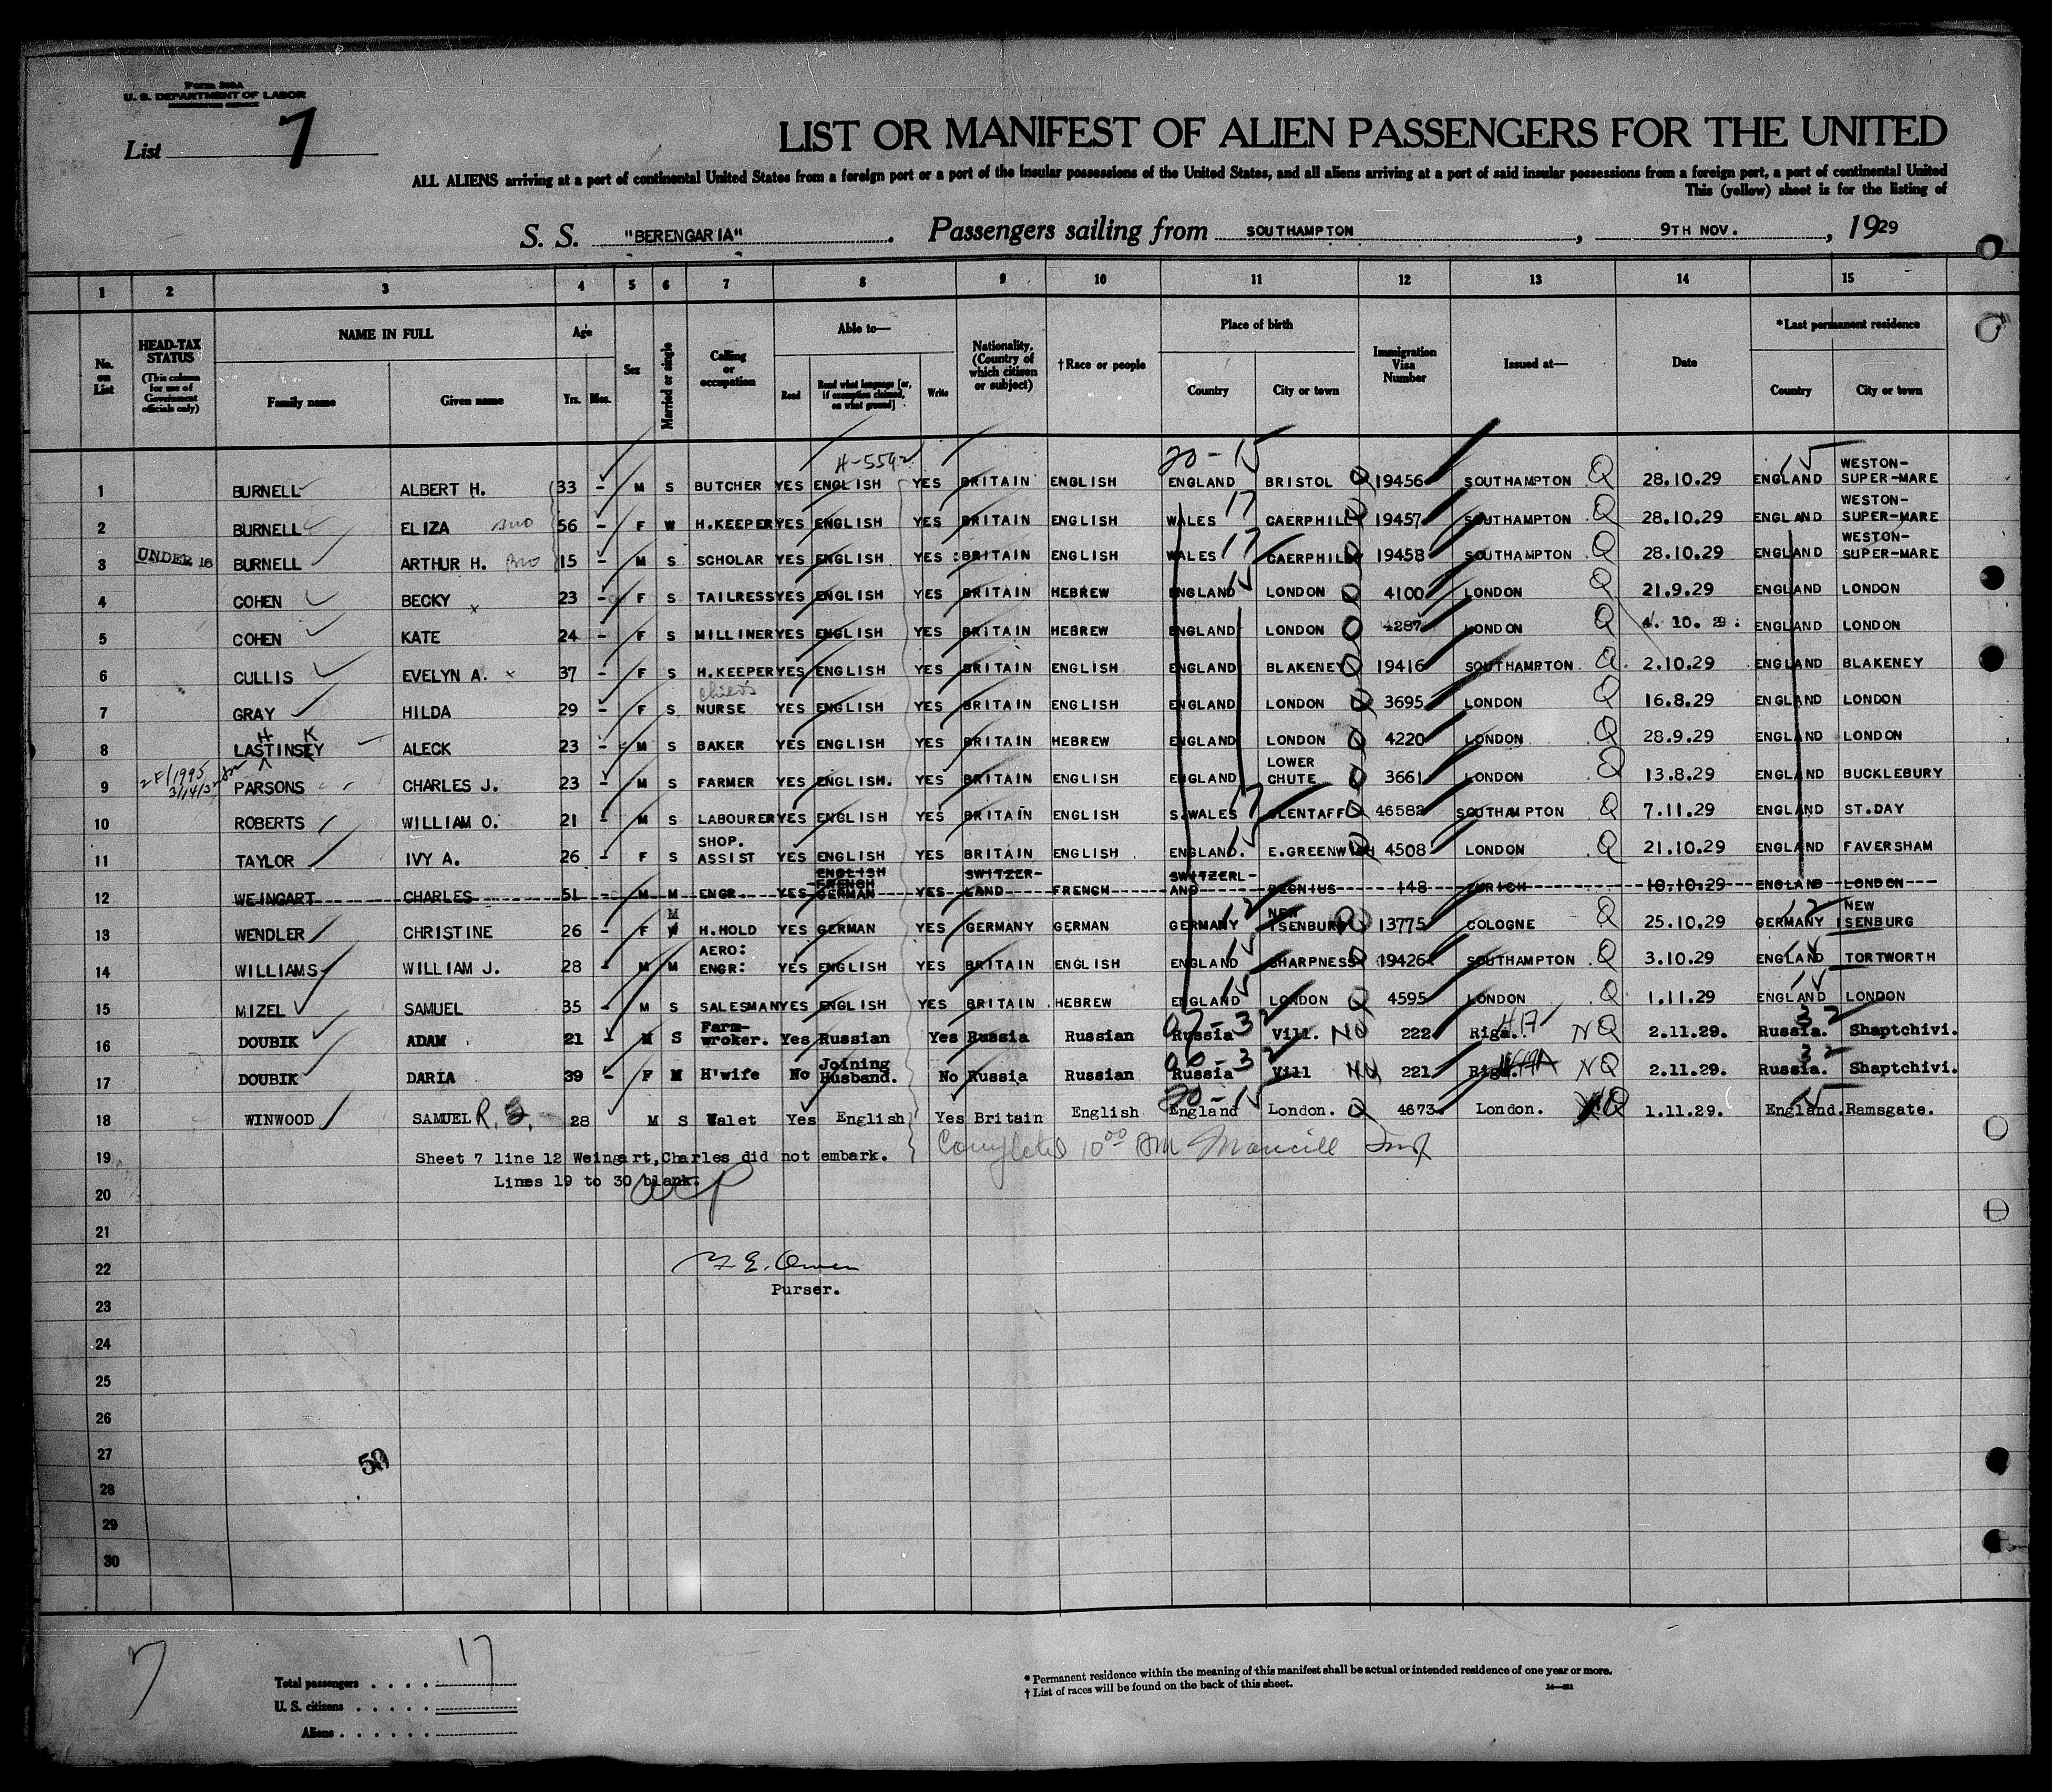 Form 500A
U. S. DEPARTMENT OF LABOR
List 7
LIST OR MANIFEST OF ALIEN PASSENGERS FOR THE UNITED
ALL ALIENS arriving at a port of continental United States from a foreign port or a port of the insular possessions of the United States, and all aliens arriving at a port of said insular possessions from a foreign port, a port of continental United
This (yellow) sheet is for the listing of
S. S. "BERENGARIA" . Passengers sailing from SOUTHAMPTON , 9TH NOV. , 1929
1 2 3 4 5 6 7 8 9 10 11 12 13 14 15
No. on List
HEAD-TAX STATUS (This column for use of Government officials only)
NAME IN FULL Family name Given name
Age Yrs. Mos.
Sex
Married or single
Calling or occupation
Able to— Read Read what language [or, if exemption claimed, on what ground] Write
Nationality. (Country of which citizen or subject)
†Race or people
Place of birth Country City or town
Immigration Visa Number
Issued at—
Date
*Last permanent residence Country City or town
H-5592 20-15 15
1 BURNELL ALBERT H. 33 - M S BUTCHER YES ENGLISH YES BRITAIN ENGLISH ENGLAND BRISTOL Q 19456 SOUTHAMPTON Q 28.10.29 ENGLAND WESTON-SUPER-MARE
2 BURNELL ELIZA 56 - F W H.KEEPER YES ENGLISH YES BRITAIN ENGLISH WALES 17 CAERPHILLY 19457 SOUTHAMPTON Q 28.10.29 ENGLAND WESTON-SUPER-MARE
3 UNDER 16 BURNELL ARTHUR H. 15 - M S SCHOLAR YES ENGLISH YES BRITAIN ENGLISH WALES 17 CAERPHILLY 19458 SOUTHAMPTON Q 28.10.29 ENGLAND WESTON-SUPER-MARE
4 COHEN BECKY x 23 - F S TAILRESS YES ENGLISH YES BRITAIN HEBREW ENGLAND 15 LONDON Q 4100 LONDON Q 21.9.29 ENGLAND LONDON
5 COHEN KATE 24 - F S MILLINER YES ENGLISH YES BRITAIN HEBREW ENGLAND LONDON Q 4287 LONDON Q 4. 10. 29 ENGLAND LONDON
6 CULLIS EVELYN A. x 37 - F S H.KEEPER YES ENGLISH YES BRITAIN ENGLISH ENGLAND BLAKENEY Q 19416 SOUTHAMPTON Q 2.10.29 ENGLAND BLAKENEY
7 GRAY HILDA 29 - F S child's NURSE YES ENGLISH YES BRITAIN ENGLISH ENGLAND LONDON Q 3695 LONDON Q 16.8.29 ENGLAND LONDON
8 LASTINSEY H K ALECK 23 - M S BAKER YES ENGLISH YES BRITAIN HEBREW ENGLAND LONDON Q 4220 LONDON Q 28.9.29 ENGLAND LONDON
9 PARSONS CHARLES J. 23 - M S FARMER YES ENGLISH. YES BRITAIN ENGLISH ENGLAND LOWER CHUTE Q 3661 LONDON Q 13.8.29 ENGLAND BUCKLEBURY
10 ROBERTS WILLIAM O. 21 - M S LABOURER YES ENGLISH YES BRITAIN ENGLISH S.WALES 17 GLENTAFF Q 46582 SOUTHAMPTON Q 7.11.29 ENGLAND ST.DAY
11 TAYLOR IVY A. 26 - F S SHOP. ASSIST YES ENGLISH YES BRITAIN ENGLISH ENGLAND. 15 E.GREENWICH 4508 LONDON Q 21.10.29 ENGLAND FAVERSHAM
12 WEINGART CHARLES 51 - M M ENGR. YES ENGLISH FRENCH GERMAN YES SWITZER-LAND FRENCH SWITZERL-AND 148 ZURICH 10.10.29 ENGLAND LONDON
13 WENDLER CHRISTINE 26 - F M W H.HOLD YES GERMAN YES GERMANY GERMAN GERMANY 12 NEW ISENBURG 13775 COLOGNE Q 25.10.29 GERMANY 12 NEW ISENBURG
14 WILLIAMS WILLIAM J. 28 - M M AERO: ENGR: YES ENGLISH YES BRITAIN ENGLISH ENGLAND 15 SHARPNESS Q 19426 SOUTHAMPTON Q 3.10.29 ENGLAND 15 TORTWORTH
15 MIZEL SAMUEL 35 - M S SALESMAN YES ENGLISH YES BRITAIN HEBREW ENGLAND 15 LONDON Q 4595 LONDON Q 1.11.29 ENGLAND 15 LONDON
16 DOUBIK ADAM 21 - M S Farm-wroker. Yes Russian Yes Russia Russian Russia Vill. NQ 222 Riga. NQ 2.11.29. Russia. 32 Shaptchivi.
17 DOUBIK DARIA 39 - F M H'wife No Joining Husband. No Russia Russian Russia Vill NQ 221 Riga. NQ 2.11.29. Russia. 32 Shaptchivi.
18 WINWOOD SAMUEL R. S. 28 M S Valet Yes English Yes Britain English England 20-15 London. Q 4673 London. Q 1.11.29. England. 15 Ramsgate.
19 Sheet 7 line 12 Weingart,Charles did not embark. Completed 10⁰⁰ AM
20 Lines 19 to 30 blank.
21
22 E. Owen
Purser.
23
24
25
26
27
28
29
30
50
7
Total passengers . . . . 17
U. S. citizens . . . . .
Aliens . . . . . .
* Permanent residence within the meaning of this manifest shall be actual or intended residence of one year or more.
† List of races will be found on the back of this sheet.